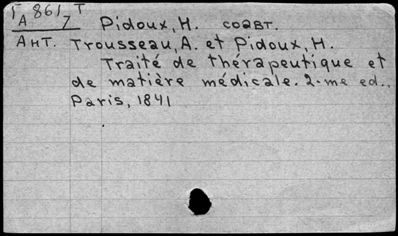 Г 861 Т
А 7 Pidoux, H. соавт.
Ант. Trousseau, A. et Pidoux, H.
Traité de thérapeutique et
de matière médicale. 2-me ed.,
Paris, 1841